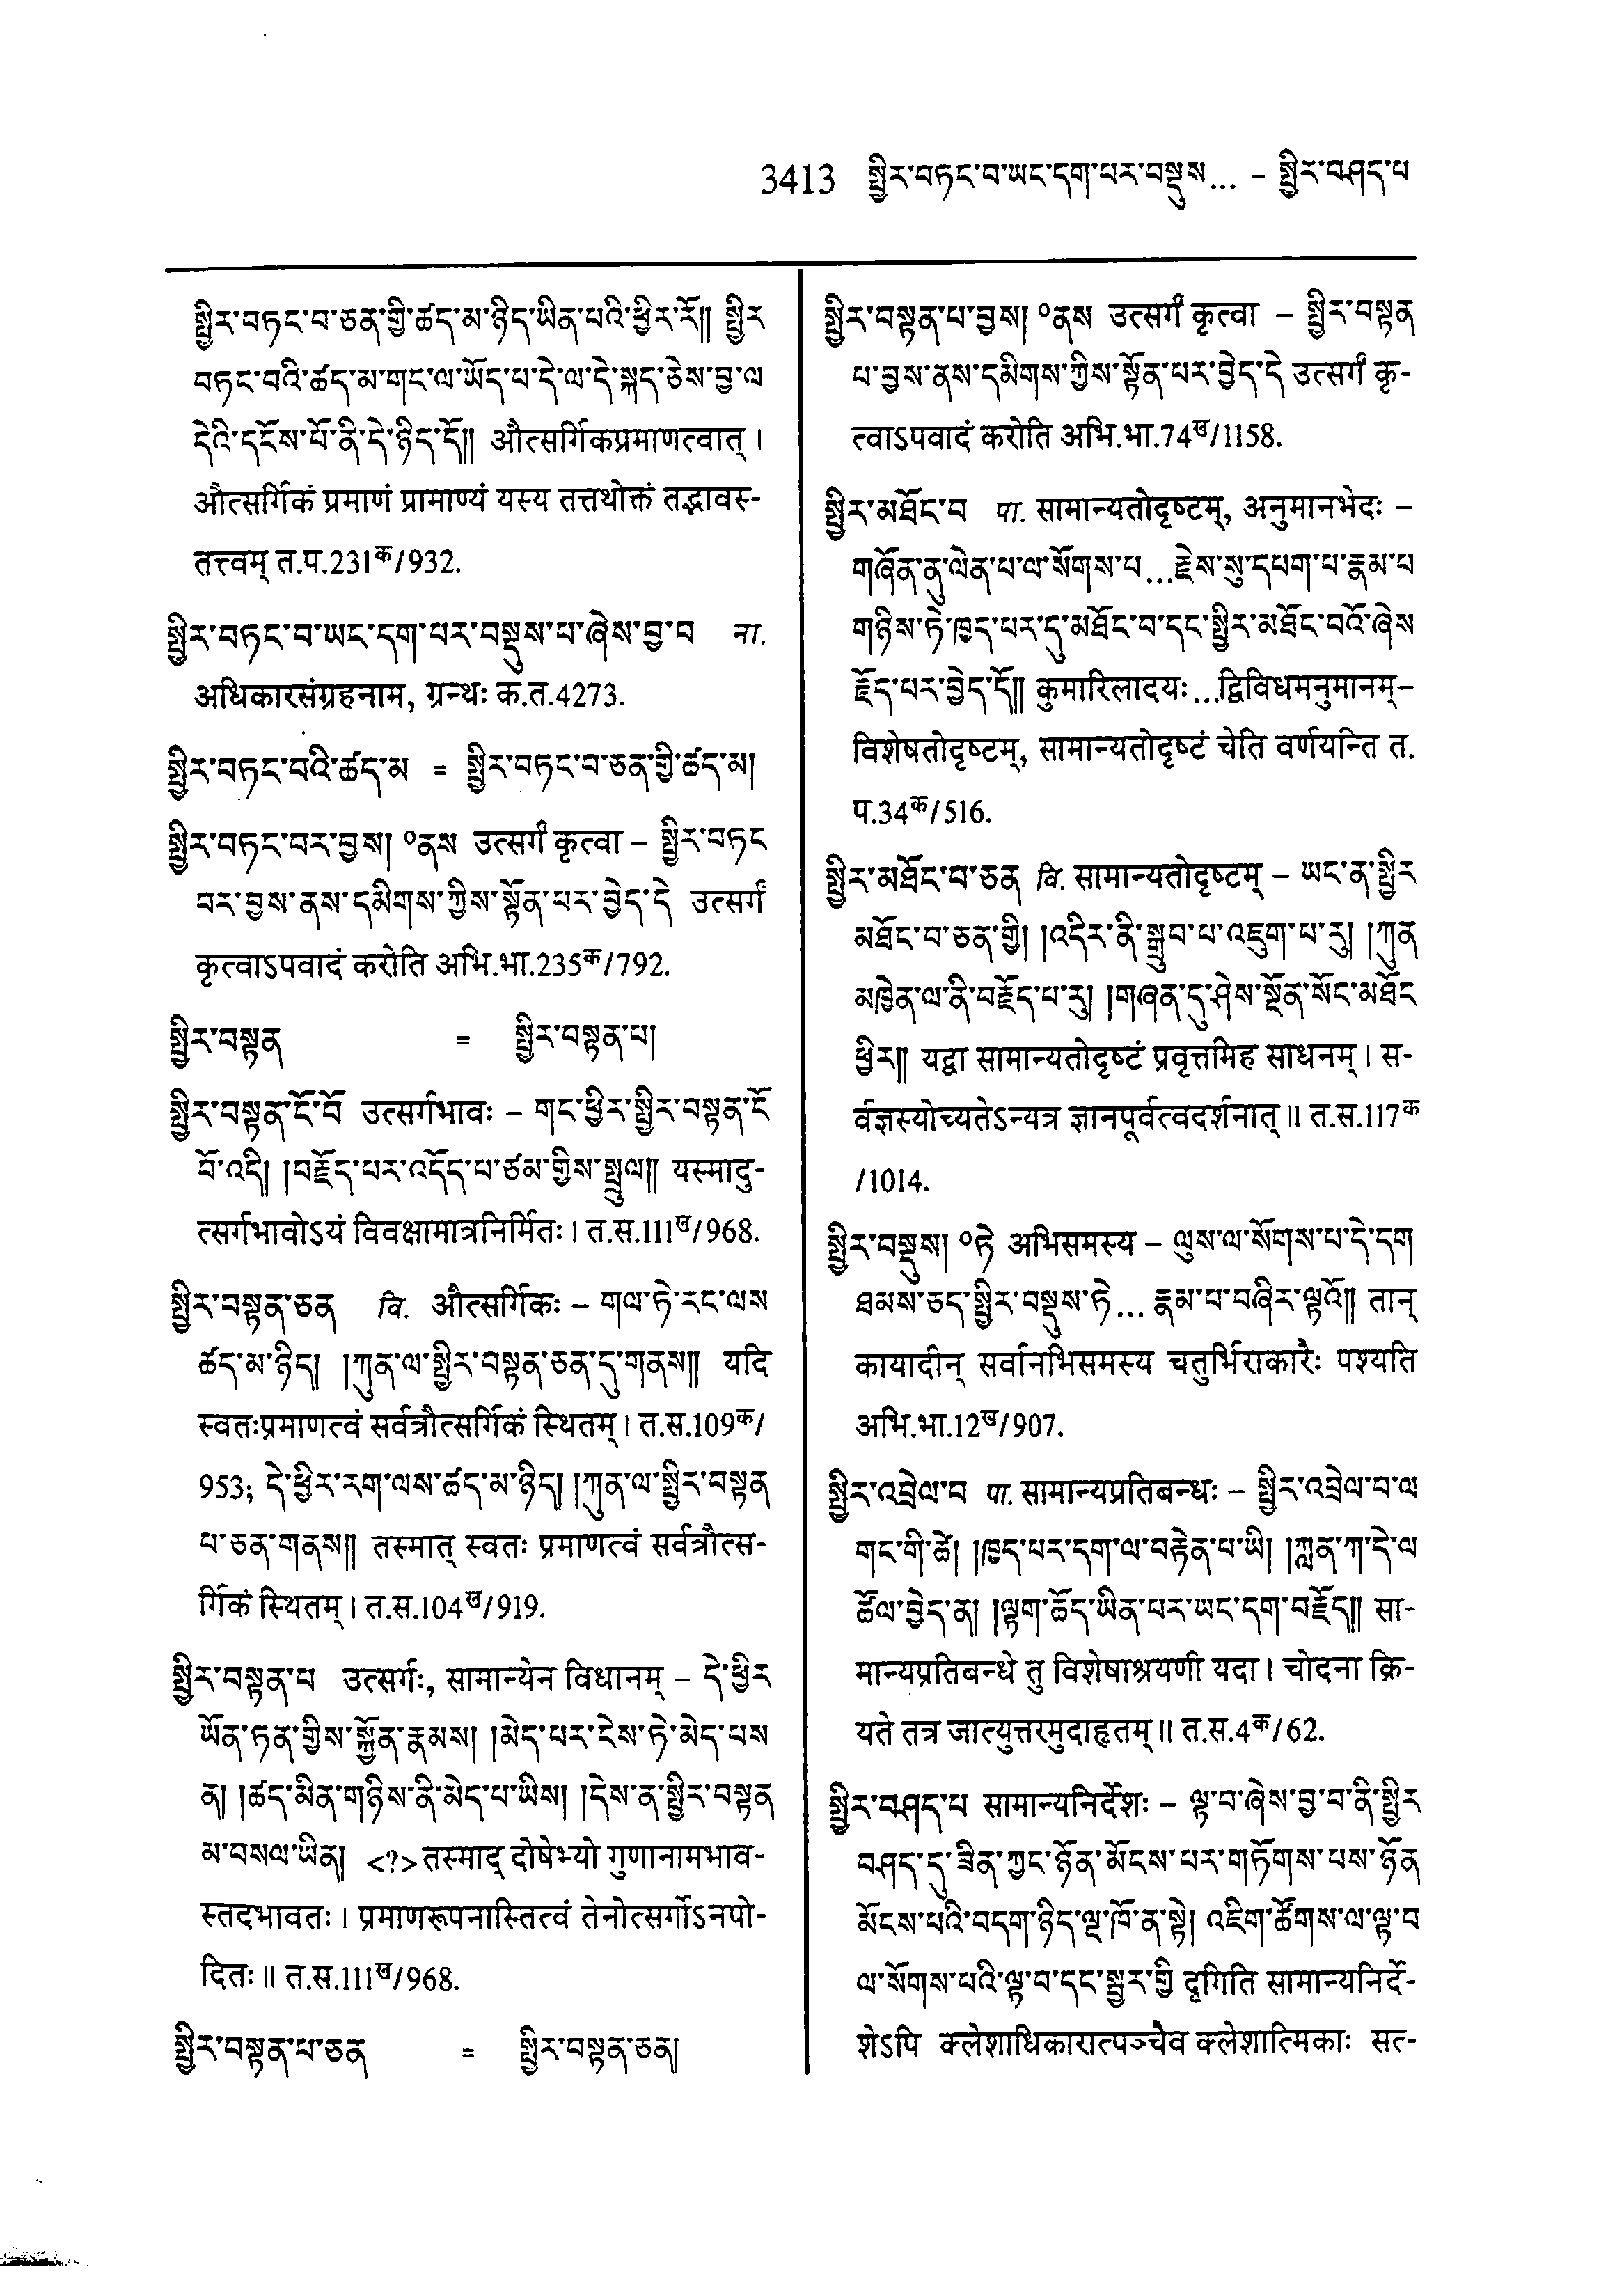 3413 སྤྱིར་བཏང་བ་ཡང་དག་པར་བསྡུས... – སྤྱིར་བཤད་པ
སྤྱིར་བཏང་བ་ཅན་གྱི་ཚད་མ་ཉིད་ཡིན་པའི་ཕྱིར་རོ།། སྤྱིར
བཏང་བའི་ཚད་མ་གང་ལ་ཡོད་པ་དེ་ལ་དེ་སྐད་ཅེས་བྱ་ལ
དེའི་དངོས་པོ་ནི་དེ་ཉིད་དོ།། औत्सर्गिकप्रमाणत्वात् ।
औत्सर्गिकं प्रमाणं प्रामाण्यं यस्य तत्तथोक्तं तद्भावस्-
तत्त्वम् त.प.231क/932.
སྤྱིར་བཏང་བ་ཡང་དག་པར་བསྡུས་པ་ཞེས་བྱ་བ ना.
अधिकारसंग्रहनाम, ग्रन्थः क.त.4273.
སྤྱིར་བཏང་བའི་ཚད་མ = སྤྱིར་བཏང་བ་ཅན་གྱི་ཚད་མ།
སྤྱིར་བཏང་བར་བྱས། ॰ནས उत्सर्गं कृत्वा – སྤྱིར་བཏང
བར་བྱས་ནས་དམིགས་ཀྱིས་སྟོན་པར་བྱེད་དེ उत्सर्गं
कृत्वाऽपवादं करोति अभि.भा.235क/792.
སྤྱིར་བསྟན = སྤྱིར་བསྟན་པ།
སྤྱིར་བསྟན་ངོ་བོ उत्सर्गभावः – གང་ཕྱིར་སྤྱིར་བསྟན་ངོ
བོ་འདི། །བརྗོད་པར་འདོད་པ་ཙམ་གྱིས་སྤྲུལ།། यस्मादु-
त्सर्गभावोऽयं विवक्षामात्रनिर्मितः । त.स.111ख/968.
སྤྱིར་བསྟན་ཅན वि. औत्सर्गिकः – གལ་ཏེ་རང་ལས
ཚད་མ་ཉིད། །ཀུན་ལ་སྤྱིར་བསྟན་ཅན་དུ་གནས།། यदि
स्वतःप्रमाणत्वं सर्वत्रौत्सर्गिकं स्थितम् । त.स.109क/
953; དེ་ཕྱིར་རག་ལས་ཚད་མ་ཉིད། །ཀུན་ལ་སྤྱིར་བསྟན
པ་ཅན་གནས།། तस्मात् स्वतः प्रमाणत्वं सर्वत्रौत्स-
र्गिकं स्थितम् । त.स.104ख/919.
སྤྱིར་བསྟན་པ उत्सर्गः, सामान्येन विधानम् – དེ་ཕྱིར
ཡོན་ཏན་གྱིས་སྐྱོན་རྣམས། །མེད་པར་ངེས་ཏེ་མེད་པས
ན། །ཚད་མིན་གཉིས་ནི་མེད་པ་ཡིས། །དེས་ན་སྤྱིར་བསྟན
མ་བསལ་ཡིན། <?> तस्माद् दोषेभ्यो गुणानामभाव-
स्तदभावतः । प्रमाणरूपनास्तित्वं तेनोत्सर्गोऽनपो-
दितः ॥ त.स.111ख/968.
སྤྱིར་བསྟན་པ་ཅན = སྤྱིར་བསྟན་ཅན།
སྤྱིར་བསྟན་པ་བྱས། ॰ནས उत्सर्गं कृत्वा – སྤྱིར་བསྟན
པ་བྱས་ནས་དམིགས་ཀྱིས་སྟོན་པར་བྱེད་དེ उत्सर्गं कृ-
त्वाऽपवादं करोति अभि.भा.74ख/1158.
སྤྱིར་མཐོང་བ पा. सामान्यतोदृष्टम्, अनुमानभेदः –
གཞོན་ནུ་ལེན་པ་ལ་སོགས་པ...རྗེས་སུ་དཔག་པ་རྣམ་པ
གཉིས་ཏེ་ཁྱད་པར་དུ་མཐོང་བ་དང་སྤྱིར་མཐོང་བའོ་ཞེས
རྗོད་པར་བྱེད་དོ།། कुमारिलादयः...द्विविधमनुमानम्–
विशेषतोदृष्टम्, सामान्यतोदृष्टं चेति वर्णयन्ति त.
प.34क/516.
སྤྱིར་མཐོང་བ་ཅན वि. सामान्यतोदृष्टम् – ཡང་ན་སྤྱིར
མཐོང་བ་ཅན་གྱི། །འདིར་ནི་སྒྲུབ་པ་འཇུག་པ་རུ། །ཀུན
མཁྱེན་ལ་ནི་བརྗོད་པ་རུ། །གཞན་དུ་ཤེས་སྔོན་སོང་མཐོང
ཕྱིར།། यद्वा सामान्यतोदृष्टं प्रवृत्तमिह साधनम् । स-
र्वज्ञस्योच्यतेऽन्यत्र ज्ञानपूर्वत्वदर्शनात् ॥ त.स.117क
/1014.
སྤྱིར་བསྡུས། ॰ཏེ अभिसमस्य – ལུས་ལ་སོགས་པ་དེ་དག
ཐམས་ཅད་སྤྱིར་བསྡུས་ཏེ... རྣམ་པ་བཞིར་ལྟའོ།། तान्
कायादीन् सर्वानभिसमस्य चतुर्भिराकारैः पश्यति
अभि.भा.12ख/907.
སྤྱིར་འབྲེལ་བ पा. सामान्यप्रतिबन्धः – སྤྱིར་འབྲེལ་བ་ལ
གང་གི་ཚེ། །ཁྱད་པར་དག་ལ་བརྟེན་པ་ཡི། །ཀླན་ཀ་དེ་ལ
ཚོལ་བྱེད་ན། །ལྟག་ཆོད་ཡིན་པར་ཡང་དག་བརྗོད།། सा-
मान्यप्रतिबन्धे तु विशेषाश्रयणी यदा । चोदना क्रि-
यते तत्र जात्युत्तरमुदाहृतम् ॥ त.स.4क/62.
སྤྱིར་བཤད་པ सामान्यनिर्देशः – ལྟ་བ་ཞེས་བྱ་བ་ནི་སྤྱིར
བཤད་དུ་ཟིན་ཀྱང་ཉོན་མོངས་པར་གཏོགས་པས་ཉོན
མོངས་པའི་བདག་ཉིད་ལྔ་ཁོ་ན་སྟེ། འཇིག་ཚོགས་ལ་ལྟ་བ
ལ་སོགས་པའི་ལྟ་བ་དང་སྦྱར་གྱི दृगिति सामान्यनिर्दे-
शेऽपि क्लेशाधिकारात्पञ्चैव क्लेशात्मिकाः सत्-